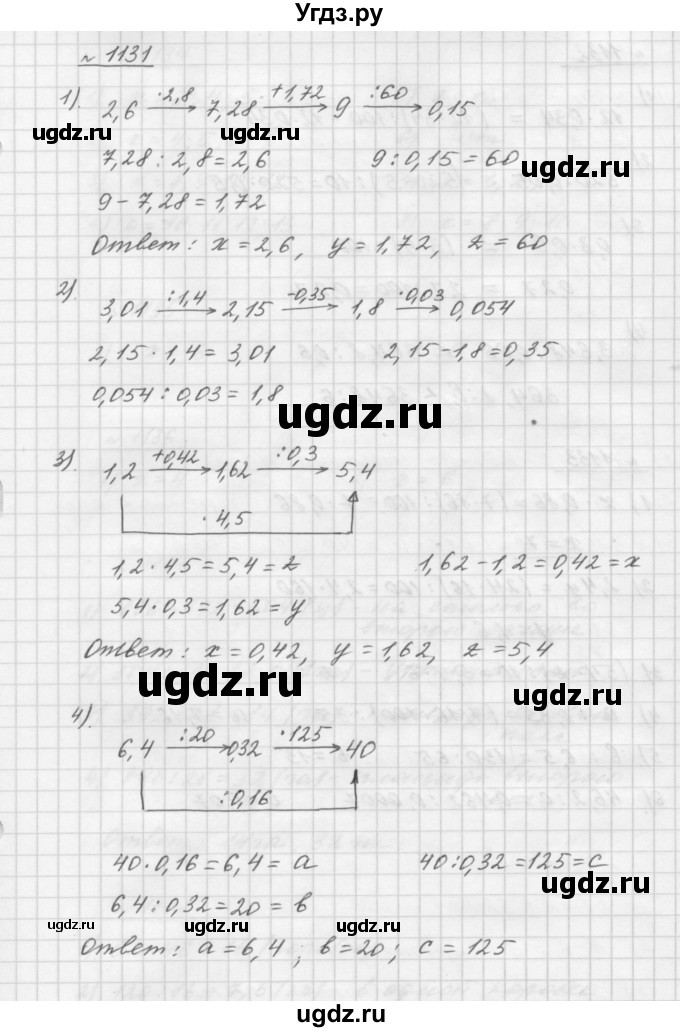 Угдз.ру
№ 1131
1). 2,6 ·2,8 → 7,28 +1,72 → 9 :60 → 0,15
ugdz.ru ugdz.ru
7,28 : 2,8 = 2,6 9 : 0,15 = 60
ugdz.ru
9 – 7,28 = 1,72
Ответ: x = 2,6, y = 1,72, z = 60
2). 3,01 :1,4 → 2,15 -0,35 → 1,8 ·0,03 → 0,054
2,15 · 1,4 = 3,01 2,15 – 1,8 = 0,35
0,054 : 0,03 = 1,8
ugdz.ru
3). 1,2 +0,42 → 1,62 :0,3 → 5,4
ugdz.ru
· 4,5
1,2 · 4,5 = 5,4 = z 1,62 – 1,2 = 0,42 = x
ugdz.ru
5,4 · 0,3 = 1,62 = y
Ответ: x = 0,42, y = 1,62, z = 5,4
ugdz.ru
4). 6,4 :20 → 0,32 ·125 → 40
ugdz.ru
:0,16
40 · 0,16 = 6,4 = a 40 : 0,32 = 125 = c
ugdz.ru
6,4 : 0,32 = 20 = в
ugdz.ru
Ответ: a = 6,4 ; в = 20 ; c = 125
ugdz.ru ugdz.ru